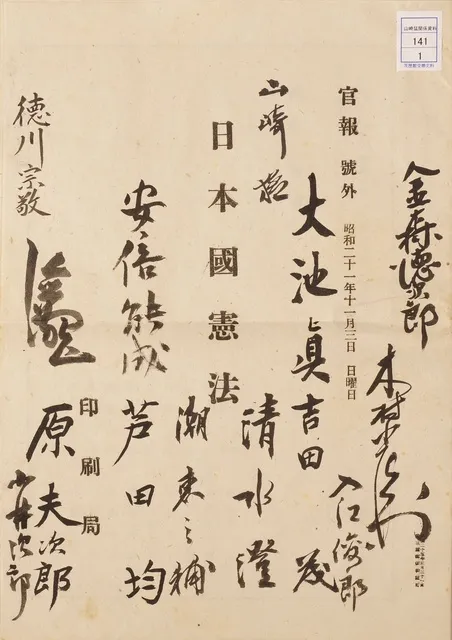 山崎猛関係資料
141
1
金森德次郎
木村
官報 號外 昭和二十一年十一月三日 日曜日
入江俊郎
大池眞
吉田茂
山崎猛
日本國憲法
清水澄
潮惠之輔
安倍能成
芦田均
印刷局
原夫次郎
德川宗敬